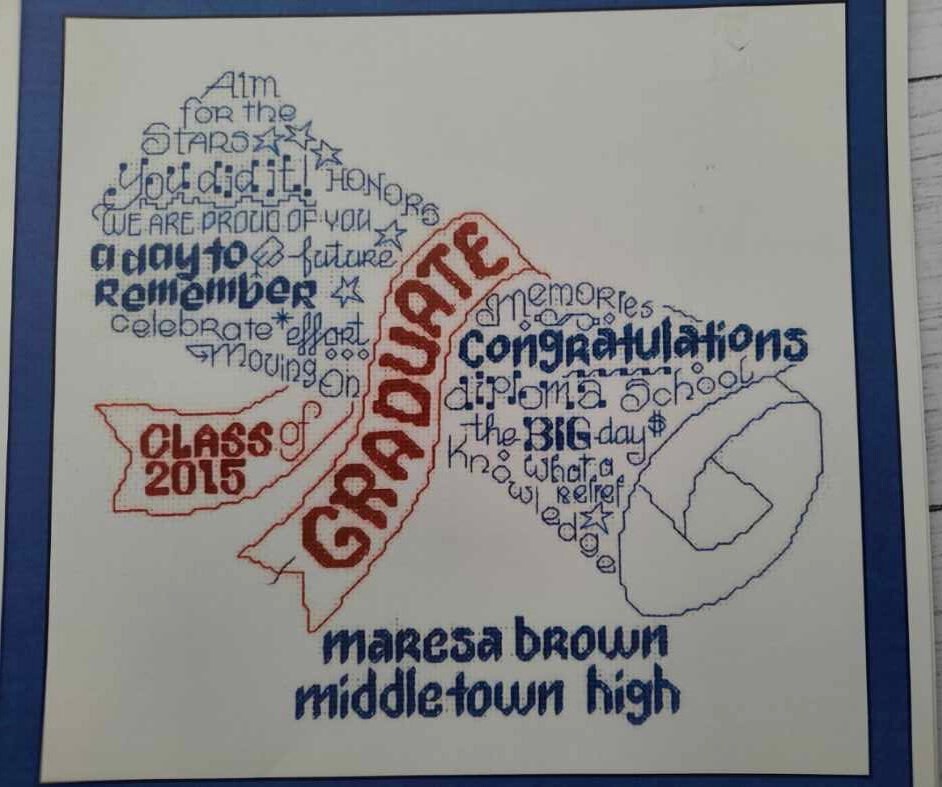 Aim
for the
Stars
You did it!
HONORS
WE ARE PROUD OF YOU
a day to
future
Remember
celebrate effort
Moving On
CLASS of
2015
GRADUATE
Memories
Congratulations
diploma School
the BIG day $
Knowledge
what a
relief
maresa brown
middletown high